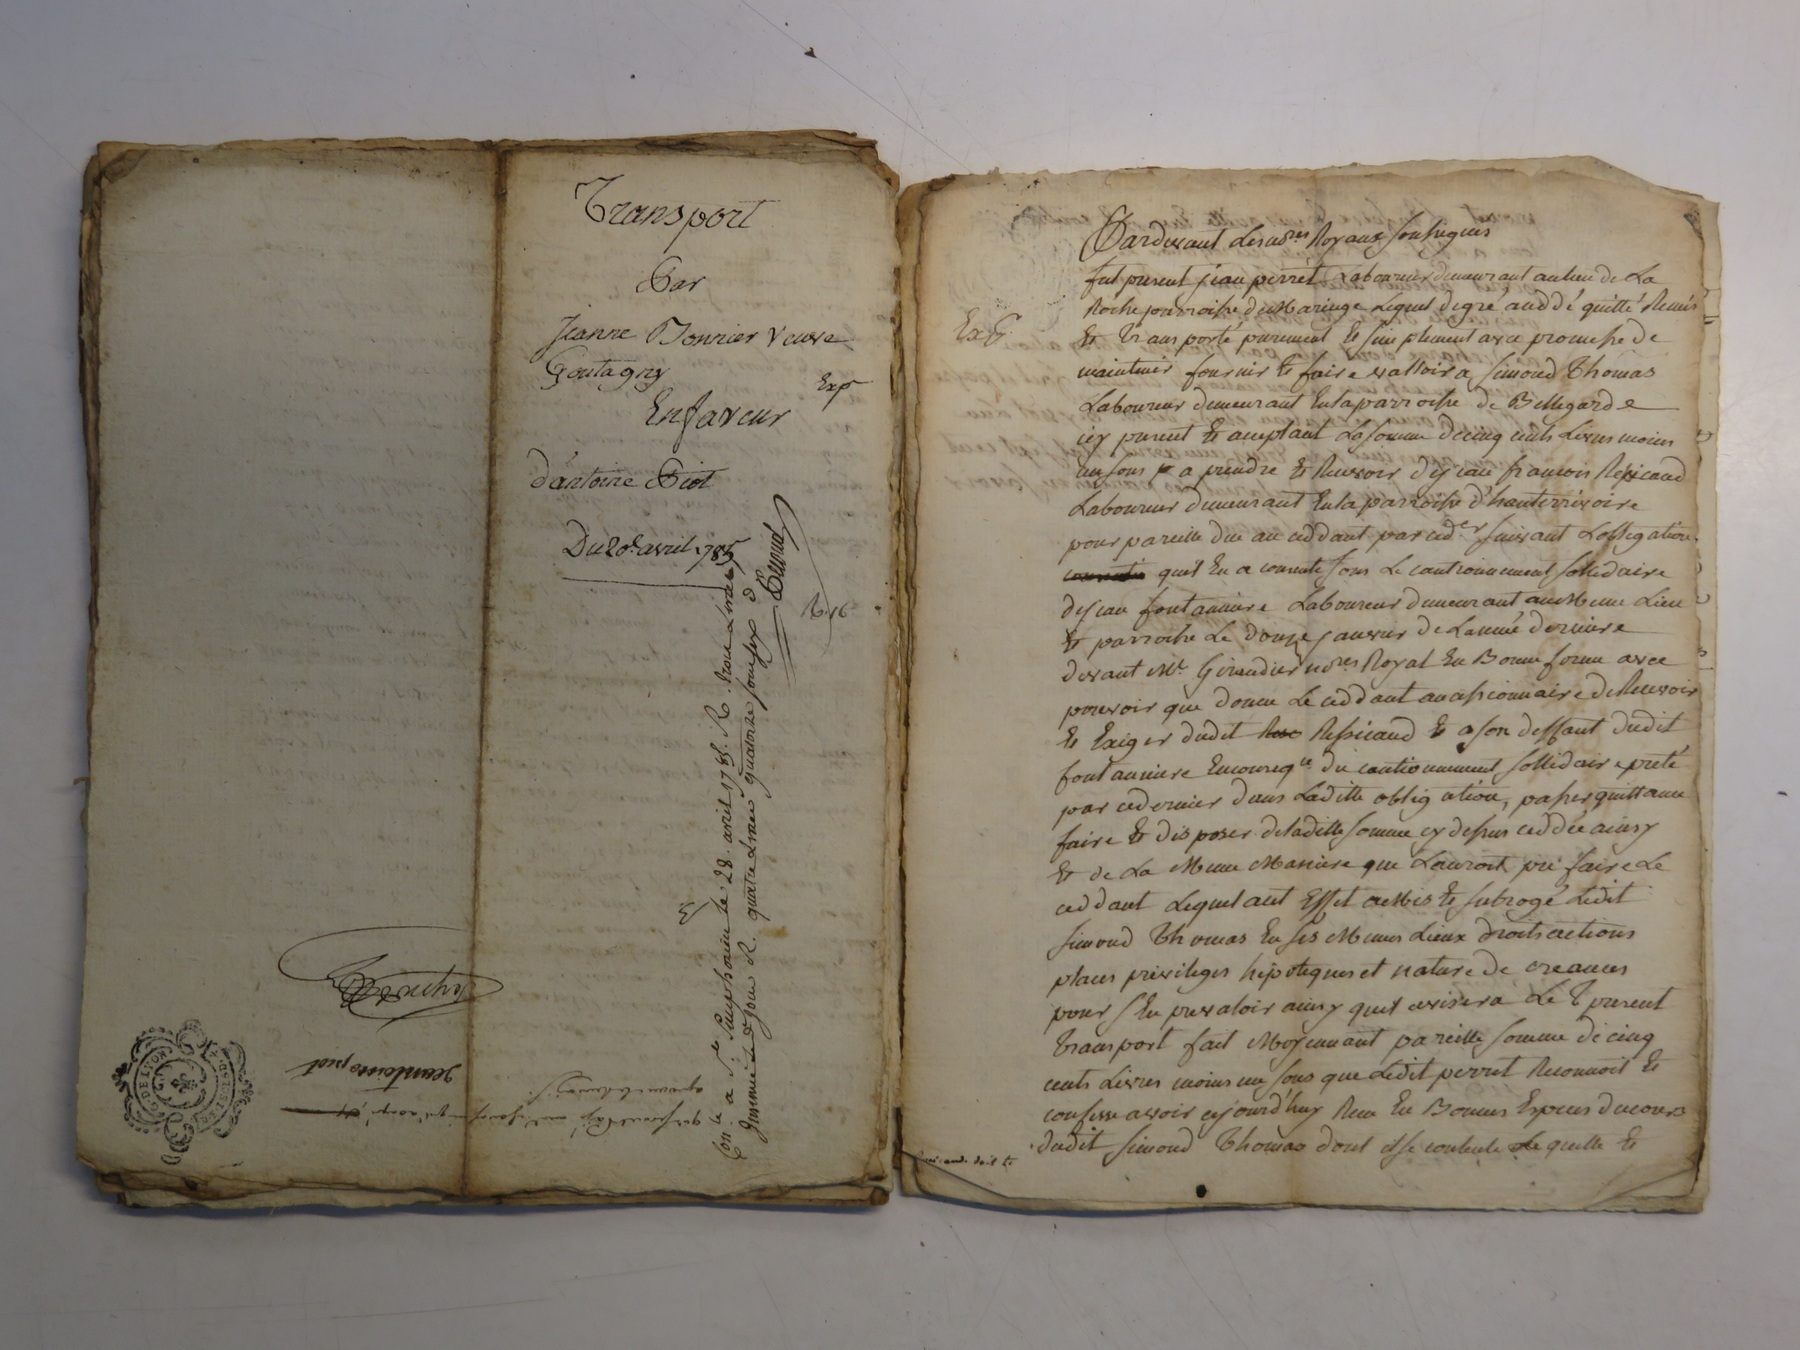 Transport
Par
Jeanne Bonnier Veuve
Goutagny
Exp
En faveur
d'antoine Piot
Du 20e avril 1785
R 16
Con.le a St. Simphorien le 28. avril 1785. R. trois Livres
quatre Livres quatorze sous six d
jeantoine piot
G. DE LYON
Pardevant Les nores Royaux soussignés
fut present jean perret Laboureur demeurant au lieu de La
Roche parroisse de Maringe Lequel de gré a ceddé quitté Remis
Exp.
et transporté purement et simplement avec promesse de
maintenir fournir et faire valloir a simond Thomas
Laboureur demeurant En la parroisse de Bellegarde
icy present et aceptant La somme de cinq cents Livres moins
un sous a prendre et Recevoir de jean francois Ressicaud
Laboureur demeurant En la parroisse d'hauterivoire
pour pareille due au ceddant par ced.er suivant L'obligation
quil En a consenti sous Le cautionnement sollidaire
de jean fontanniere Laboureur demeurant au Meme Lieu
et parroisse Le douze janvier de L'année derniere
devant Me. Giraudier nore Royal En Bonne forme avec
pouvoir que donne Le ceddant au cessionnaire de Recevoir
et Exiger dudit Ressicaud et a son deffaut dudit
fontanniere En conseqce. du cautionnement sollidaire preté
par ce dernier dans Laditte obligation, passer quittance
faire et disposer de laditte somme cy dessus ceddée ainsy
et de La Meme Maniere que L'auroit pu faire Le
ceddant Lequel a cet Effet a Mis et subrogé Ledit
simond Thomas En ses Memes Lieux droits actions
places privileges hipoteques et nature de creances
pour s'En prevaloir ainsy quil avisera Le present
Transport fait Moyennant pareille somme de cinq
cents Livres moins un sous que Ledit perret Reconnoit et
confesse avoir cejourd'huy Recu En Bonnes Especes du cours
dudit simond Thomas dont il se contente Le quitte et